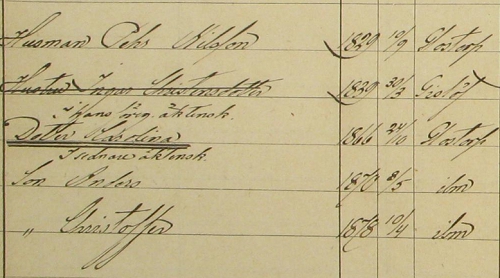 Husman Pehr Nilsson 1829 19/9 Glostorp
Hustru Inger Christensdotter 1829 30/3 Gislöf
I hans föreg. äktensk.
Dotter Carolina 1866 24/10 Glostorp
I sednare äktensk.
Son Anders 1870 8/5 ibm
" Christoffer 1878 10/4 ibm